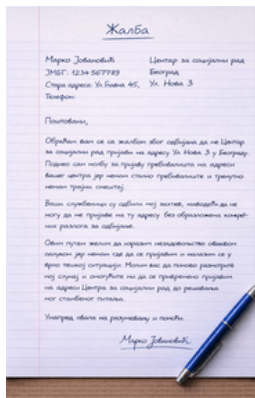 Жалба
Марко Јовановић
ЈМБГ: 1234567789
Стара адреса: Ул. Главна 45,
Телефон:
Центар за социјални рад
Београд
Ул. Нова 3
Поштовани,
Обраћам вам се са жалбом због одбијања да ме Центар
за социјални рад пријави на адресу Ул. Нова 3 у Београду.
Поднео сам молбу за пријаву пребивалишта на адреси
вашег центра јер немам стално пребивалиште и тренутно
немам трајни смештај.
Ваши службеници су одбили мој захтев, наводећи да не
могу да ме пријаве на ту адресу без образложена конкрет-
них разлога за одбијање.
Овим путем желим да изразим незадовољство оваквом
одлуком јер немам где да се пријавим и налазим се у
врло тешкој ситуацији. Молим вас да поново размотрите
мој случај и омогућите ми да се привремено пријавим
на адреси Центра за социјални рад до решавања
мог стамбеног питања.
Унапред хвала на разумевању и помоћи.
Марко Јовановић